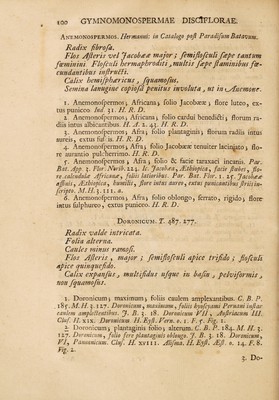 100 GYMNOMONOSPERMAE DISCIFLORAE.
ANEMONOSPERMOS. Hermanni in Catalogo post Paradisum Batavum.
Radix fibrosa.
Flos Asteris vel Jacobææ major; semiflosculi sæpe tantum
fœminini. Flosculi hermaphroditi, multis sæpe staminibus fœ-
cundantibus instructi.
Calix hemisphæricus, squamosus.
Semina lanugine copiosâ penitus involuta, ut in Anemone.
1. Anemonospermos, Africana, folio Jacobææ, flore luteo, ex-
tus puniceo. Ind. 31. H. R. D.
2. Anemonospermos, Africana, folio cardui benedicti, florum ra-
diis intus albicantibus. H. A. 2. 43. H. R. D.
3. Anemonospermos, Afra, folio plantaginis, florum radiis intus
aureis, extus H. R. D.
4. Anemonospermos, Afra, folio Jacobææ tenuiter laciniato, flo-
re aurantio pulcherrimo. H. R. D.
5. Anemonospermos, Afra, folio & facie taraxaci incanis. Par.
Bat. App. 3. Flor. Norib. 223. It. Jacobæa, Æthiopica, facie flobes, flo-
re calendulæ Africanæ, foliis latioribus. Par. Bat. Flor. 1. 25. Jacobææ
affinis, Æthiopica, humilis, flore intus aureo, extus punicantibus striis in-
scripto. M. H. 3. 111. a.
6. Anemonospermos, Afra, folio oblongo, serrato, rigido, flore
intus sulphureo, extus puniceo. H. R. D.
DORONICUM. T. 487. 277.
Radix valde intricata.
Folia alterna.
Caules minus ramosi.
Flos Asteris, major; semiflosculi apice trifido; flosculi
apice quinquefido.
Calix expansus, multifidus usque in basin, pelviformis,
non squamosus.
1. Doronicum; maximum, foliis caulem amplexantibus. C. B. P.
185. M. H. 3. 127. Doronicum, maximum, foliis
caulem amplectentibus. J. B. 3. 18. Doronicum VII, Austriacum III.
Clus. H. XIX. Doronicum H. Eyst. Vern. o. 1. F. 5. Fig. 1.
2. Doronicum; plantaginis folio; alterum. C. B. P. 184. M. H. 3.
127. Doronicum, folio fere plantaginis oblongo. J. B. 3. 18. Doronicum,
VI, Pannonicum. Clus. H. XVIII. Alisma. H. Eyst. Æst. o. 14. F. 8.
Fig. 2.
3. Do-